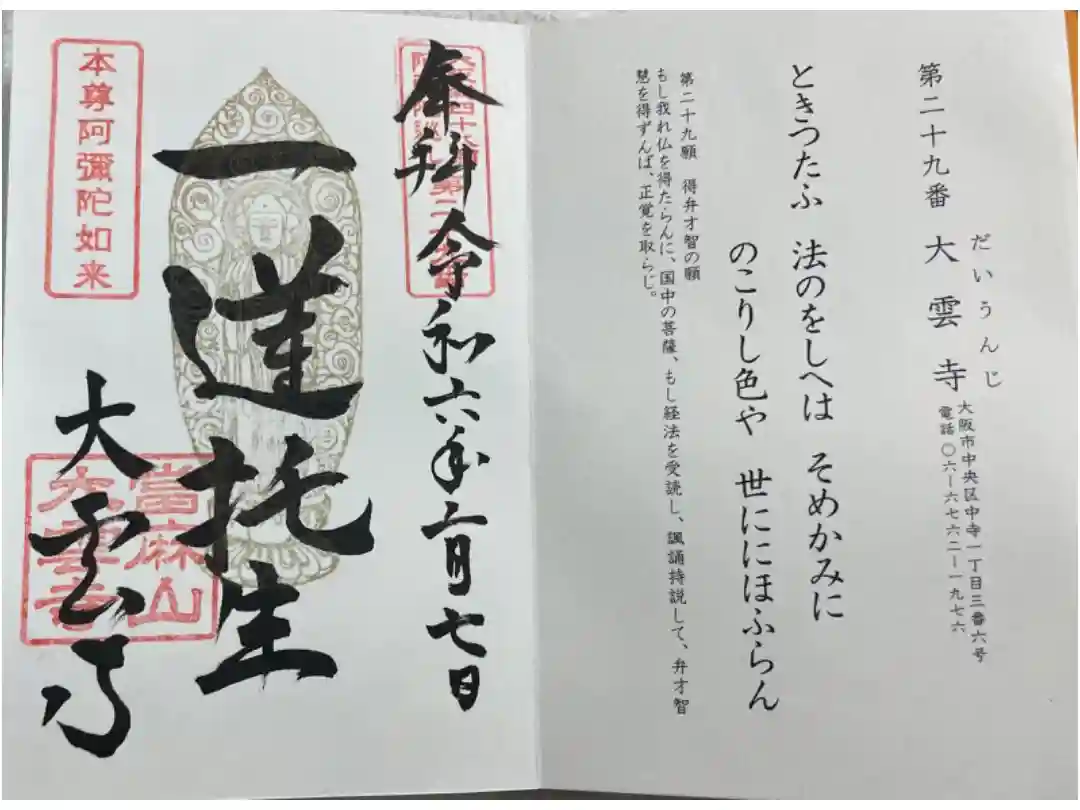 第二十九番 大雲寺
だいうんじ
大阪市中央区中寺一丁目三番六号
電話 〇六ー六七六二ー一九七六
ときつたふ 法のをしへは そめかみに
のこりし色や 世ににほふらん
第二十九願 得弁才智の願
もし我れ仏を得たらんに、国中の菩薩、もし経法を受読し、諷誦持説して、弁才智
慧を得ずんば、正覚を取らじ。
奉拝 令和六年二月七日
一蓮托生
大雲寺
本尊阿彌陀如来
當麻山
大雲寺